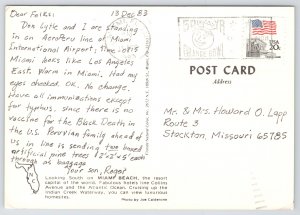 Dear Folks: 13 Dec 83
Don Lytle and I are standing
in an AeroPeru line at Miami
International Airport; time: 0815
Miami looks like Los Angeles
East. Warm in Miami. Had my
eyes checked OK. No change.
Have all communications except
for typhus. Since there is no
vaccine for the Black Death in
the U.S. Peruvian family ahead of
us in line is sending two boxed
artificial pine trees 12"x12"x5' each
through as baggage
Your son, Roger
Looking South over MIAMI BEACH, the resort
capital of the world. Fabulous hotels line Collins
Avenue and the Atlantic Ocean. Cruising up the
Indian Creek Waterway, you can view luxurious
homesites.
Photo by Joe Caldwell
USA
20c
POST CARD
Address
Mr. & Mrs. Howard O. Lapp
Route 3
Stockton, Missouri 65785